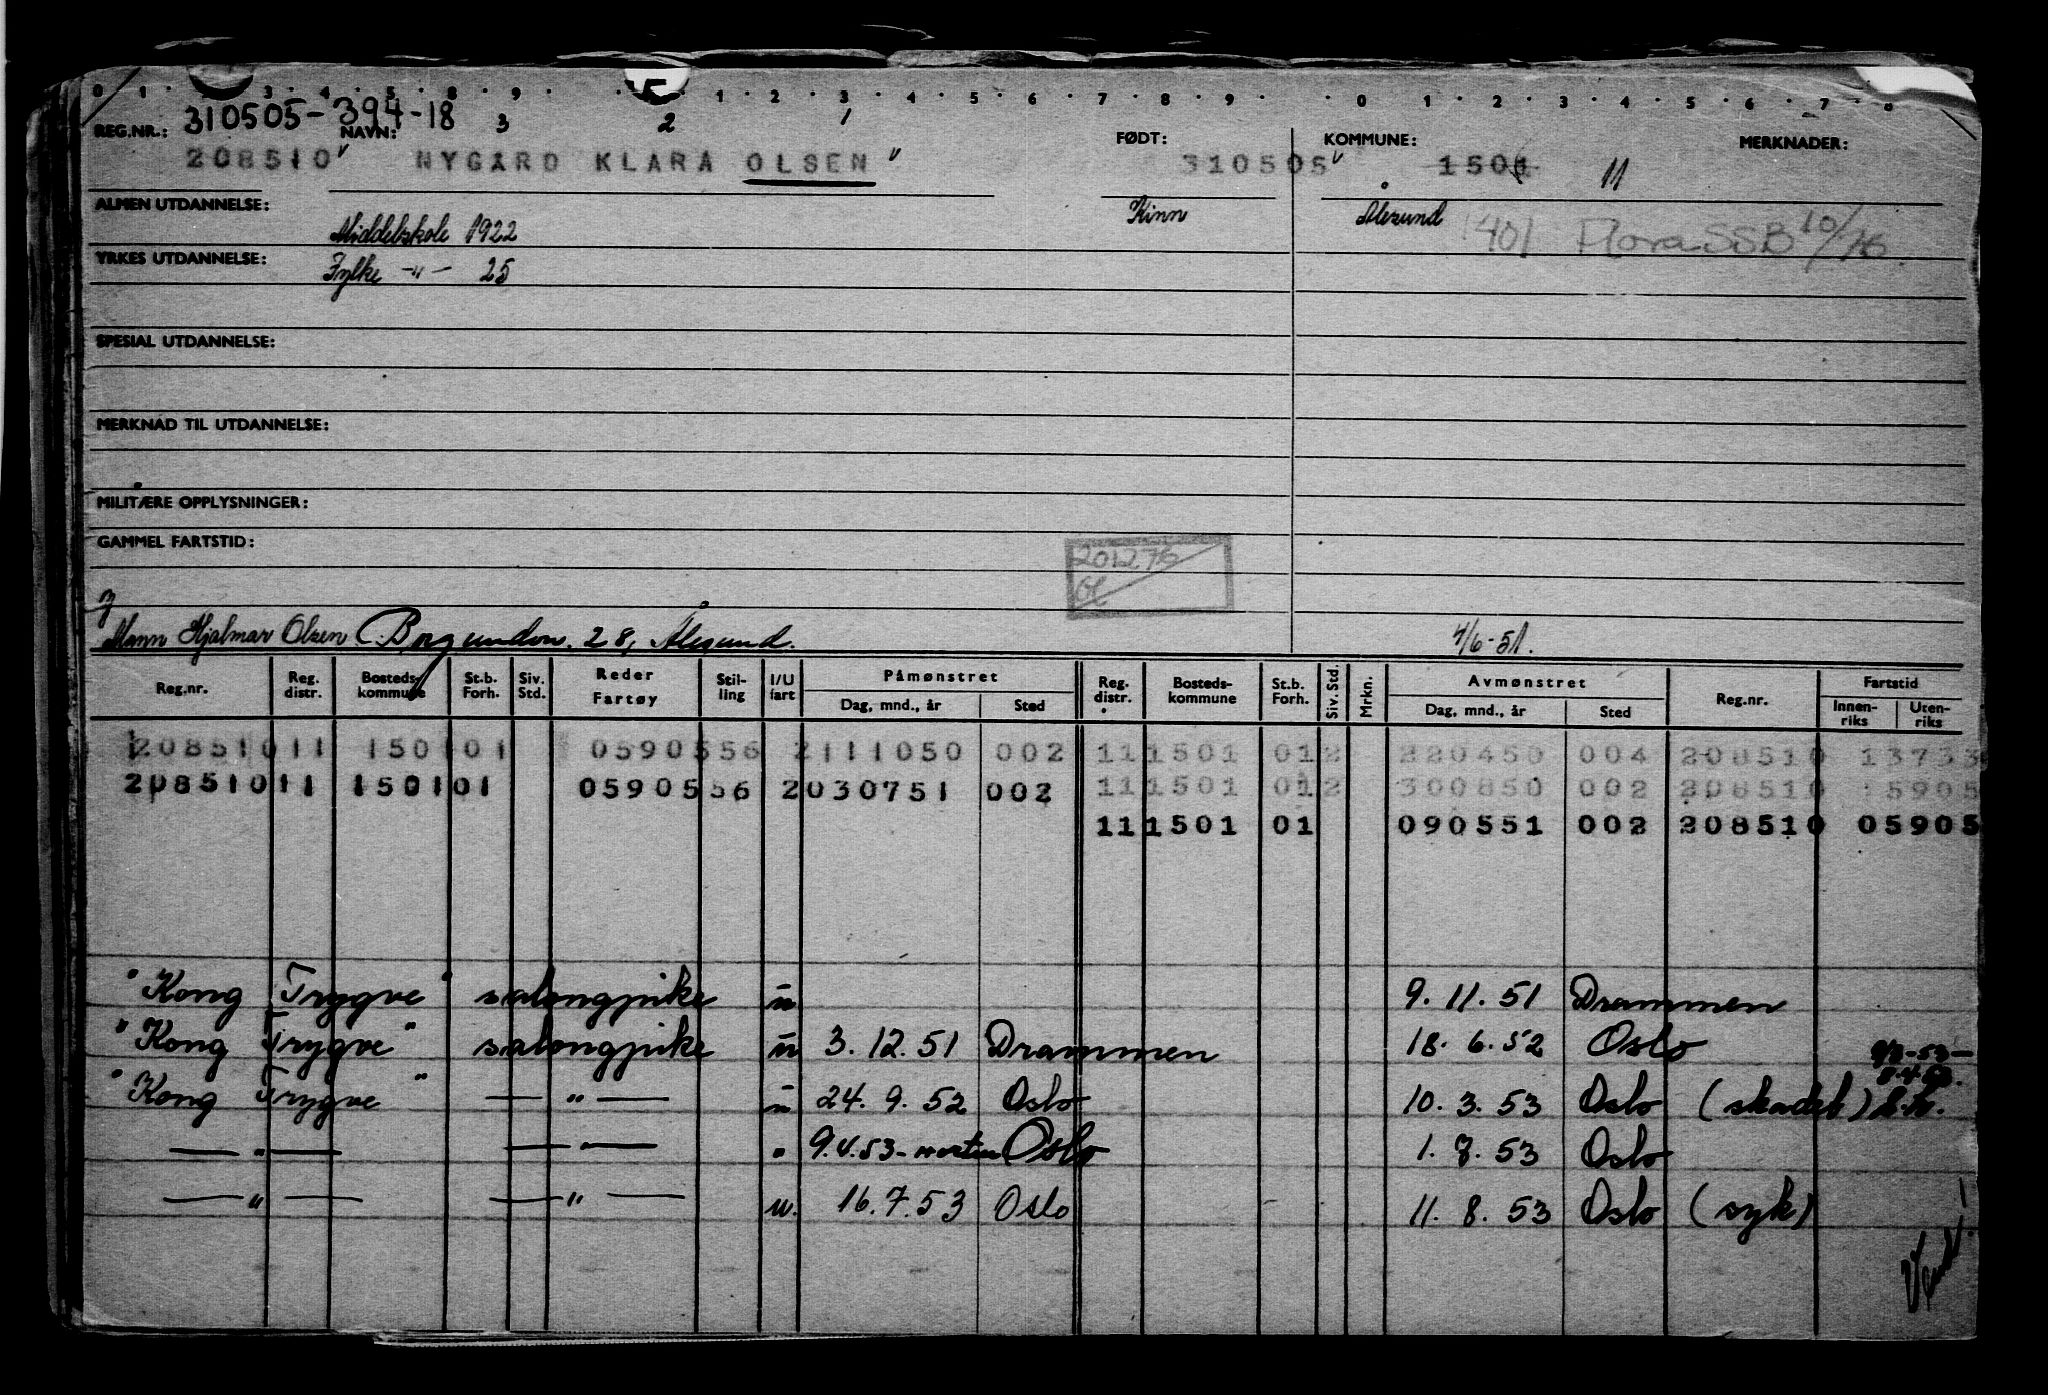 0 1 3 4 5 8 9 1 2 3 4 5 6 7 8 9 0 1 2 3 4 5 6 7 8
REG.NR.: 310505-394-18 NAVN: 3 5 2 1 FØDT: KOMMUNE: MERKNADER:
208510 NYGÅRD KLARA OLSEN 310505 1501 11
ALMEN UTDANNELSE: Middelskole 1922 Kinn Ålesund 1401 Flora SSB 10/76.
YRKES UTDANNELSE: Fylke -"- 25
SPESIAL UTDANNELSE:
MERKNAD TIL UTDANNELSE:
MILITÆRE OPPLYSNINGER:
GAMMEL FARTSTID:
201276
Mann Hjalmar Olsen Borgundvn. 28, Ålesund. 4/6-51.
Reg.nr. Reg. distr. Bosteds-kommune St.b. Forh. Siv. Std. Reder Fartøy Stil-ling I/U fart Påmønstret Dag, mnd., år Sted Reg. distr. Bosteds-kommune St.b. Forh. Siv. Std. Mrkn. Avmønstret Dag, mnd., år Sted Reg.nr. Fartstid Innen-riks Uten-riks
208510 11 1501 01 0590556 2 111050 002 11 1501 01 2 220450 004 208510 13733
208510 11 1501 01 0590556 2 030751 002 11 1501 01 2 300850 002 208510 15905
11 1501 01 090551 002 208510 05905
"Kong Trygve" salongpike u 9.11.51 Drammen
"Kong Trygve" salongpike u 3.12.51 Drammen 18.6.52 Oslo
"Kong Trygve" — " — u 24.9.52 Oslo 10.3.53 Oslo (skadet)
— " — — " — " 9.4.53 Oslo 1.7.53 Oslo
— " — — " — u. 16.7.53 Oslo 11.8.53 Oslo (syk)
Vend!